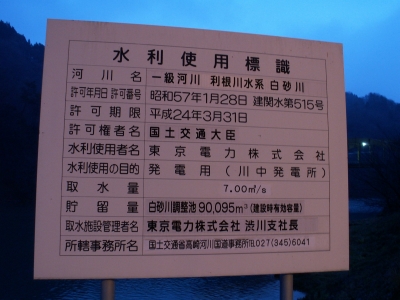 水利使用標識
河川名 一級河川 利根川水系 白砂川
許可年月日 許可番号 昭和57年1月28日 建関水第515号
許可期限 平成24年3月31日
許可権者名 国土交通大臣
水利使用者名 東京電力株式会社
水利使用の目的 発電用(川中発電所)
取水量 7.00m³/s
貯留量 白砂川調整池 90,095m³(建設時有効容量)
取水施設管理者名 東京電力株式会社 渋川支社長
所轄事務所名 国土交通省高崎河川国道事務所TEL027(345)6041